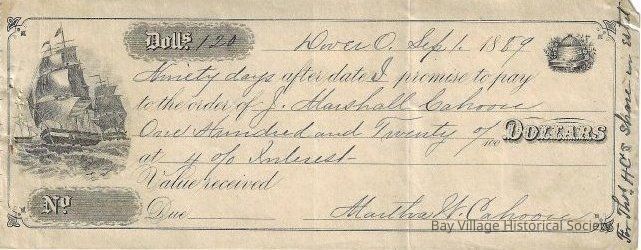 Dolls. 120 Dover O. Sep. 1. 1889
Ninety days after date I promise to pay
to the order of J. Marshall Cahoon
One Hundred and Twenty 0/100 DOLLARS
at 4 o/o Interest—
Value received
No. Due Martha W. Cahoon
Bay Village Historical Society
For Thos. H C's Share in